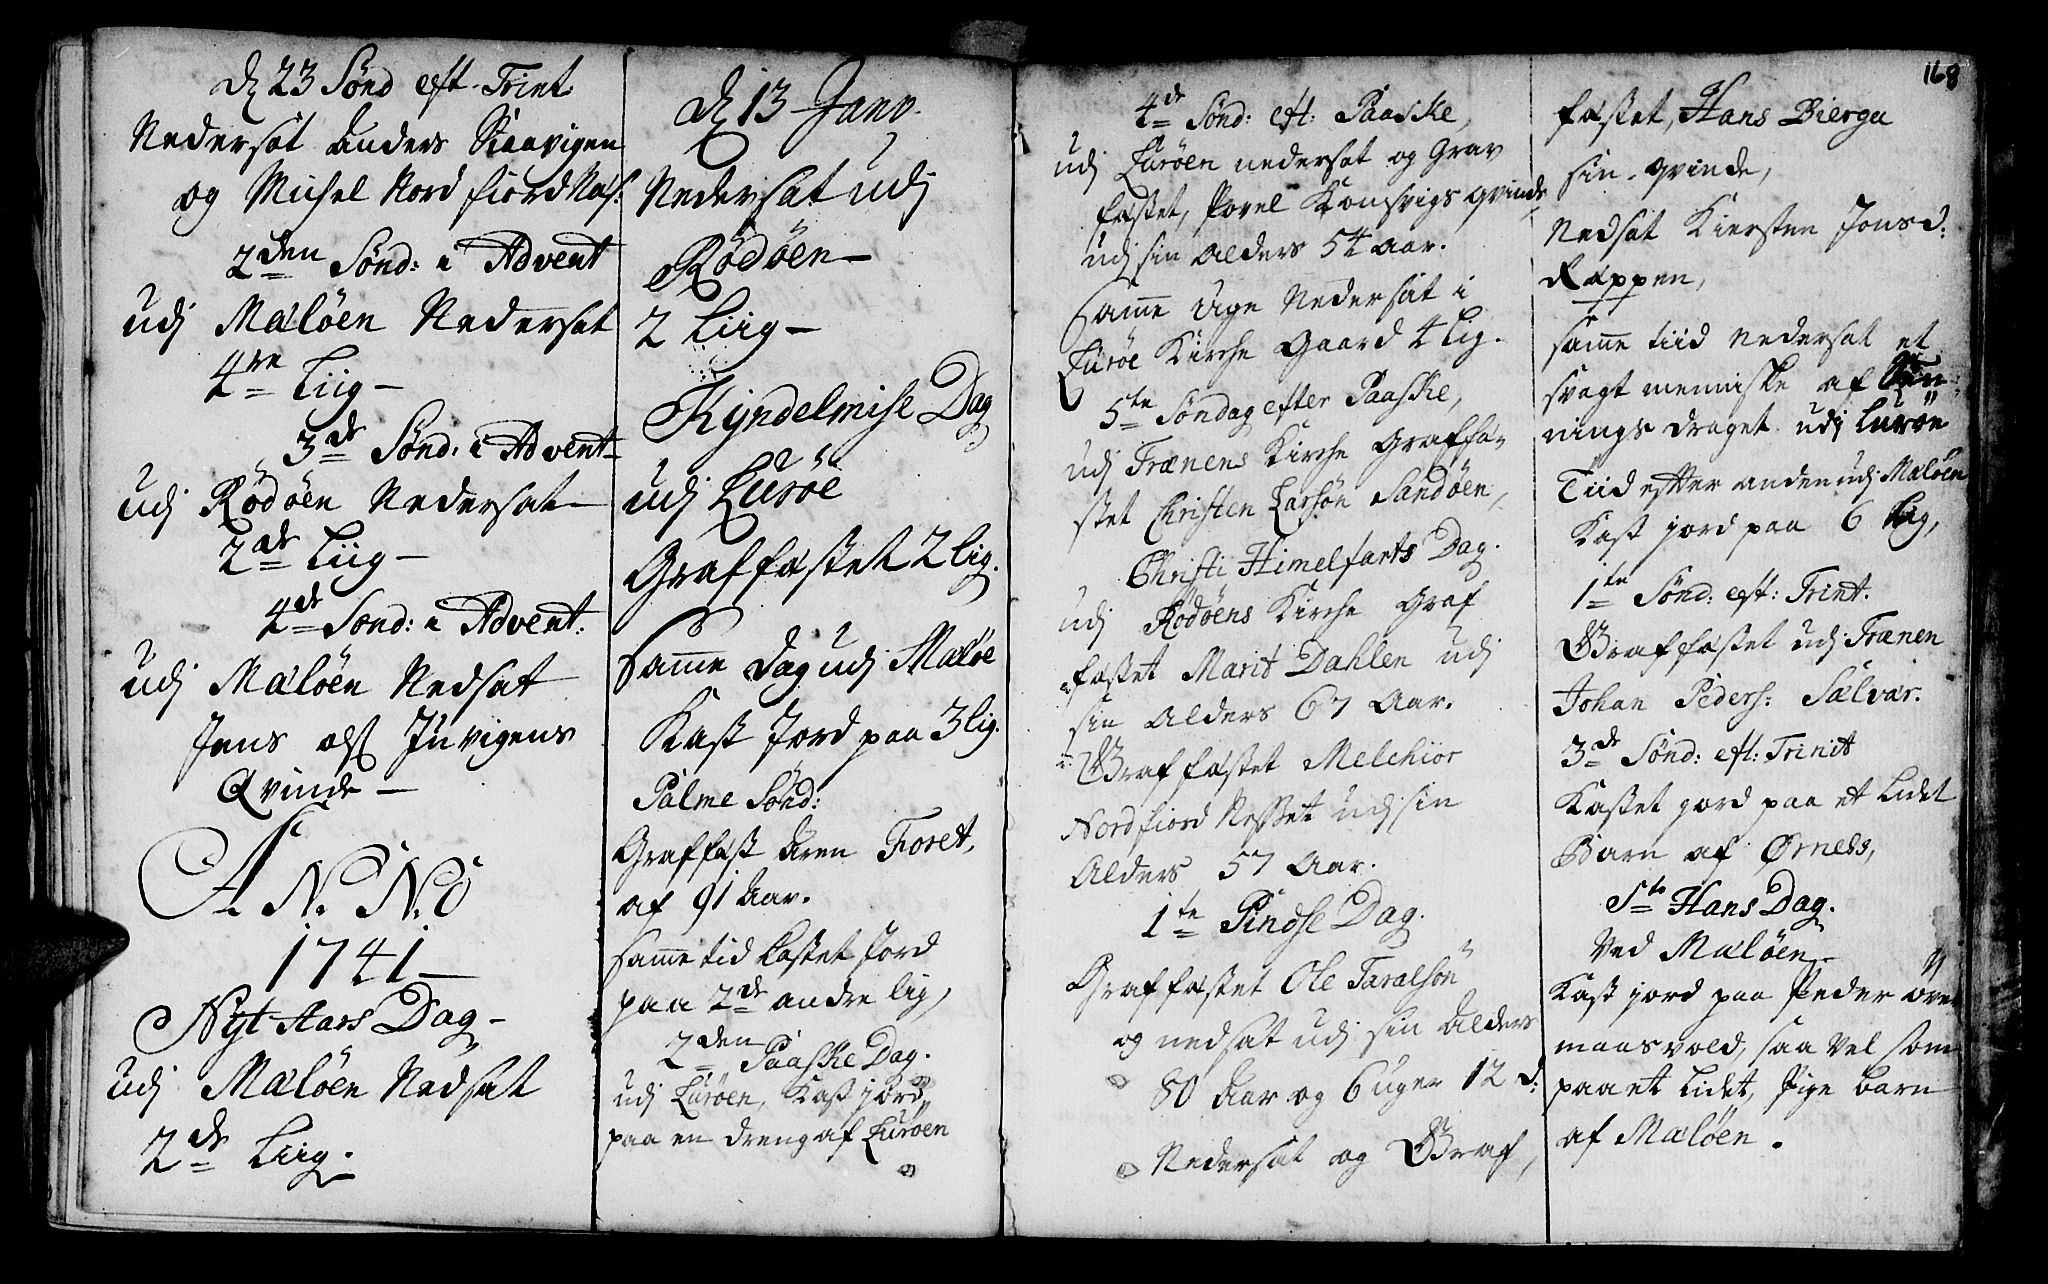 D 23 Sønd eft. Trint.
Nedersat Anders Skaavigen
og Michel Nord fiord Næs:
2den Sønd: i Advent
udj Mæløen Nedersat
4re Liig —
3de Sønd: i Advent —
udj Rödöen Nedersat —
2de Liig —
4de Sönd: i Advent:
udj Mæløen Nedsat
Jens Jnvigens
Qvinde —
ANNO
1741 —
Nÿt Aars Dag —
udj Mæløen Nedsat
2de Liig.
D 13 Janv.
Nedersat udj
Rödöen —
2 Liig —
Kÿndelmise Dag
udj Lurøe
Graffæstet 2 lig.
Samme Dag udj Mæløe
Kast Jord paa 3 lig.
Palme Sønd:
Graffæst Aren Foret,
af 91 Aar.
Samme tid kastet Jord
paa 2de andre lig,
2den Paaske Dag.
udj Lurøen, Kast jord
paa en dreng af Lurøen
168
4de Sønd: eft: Paaske,
udj Lurøen nedersat og Grav
fæstet, Povel Konsvigs qvinde
udj sin Alders 54 Aar.
Samme Uge Nedersat i
Lurøe Kirche Gaard 4 lig.
5te Søndag efter Paaske,
udj Trænens Kirche Graffæ-
stet Christen Larsøn Sandøen,
Christi Himelfarts Dag.
udj Rödöens Kirche Graf
fæstet Marit Dahlen udj
sin Alders 67 Aar.
Graffæstet Melchior
Nordfiord Nesset udj sin
Alders 57 Aar.
1te Pindse Dag.
Graffæstet Ole Taralsön
og nedsat udj sin Alders
80 Aar og 6 uger 12 d:
Nedersat og Graf,
fæstet, Hans Bierga
sin qvinde,
Nedsat Kiersten Jonsd:
Ræppen,
samme tiid Nedersat et
svagt menniske af
nings draget udj Lurøe
Tiid efter anden udj Mæløen
Kast jord paa 6 lig,
1te Sønd: eft: Trint.
Graffæstet udj Trænen
Johan Peders: Sælvær.
3de Sønd: eft: Trinit
Kastet jord paa et Lidet
Barn af Ørness,
Ste Hans Dag.
Ved Mæløen
Kast jord paa Peder Øve
maasvold, saa vel som
paa et Lidet, Pige barn
af Mæløen.